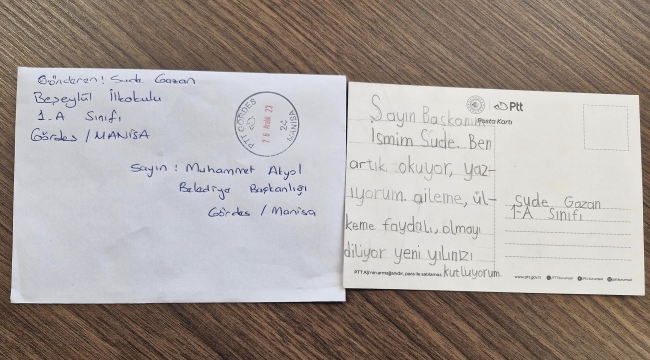 Gönderen: Sude Gazan
Beşeylül İlkokulu
1-A Sınıfı
Gördes / MANİSA
Sayın: Muhammet Akyol
Belediye Başkanlığı
Gördes / Manisa
PTT GÖRDES
26 Aralık 23
24
MANİSA
Ptt
Posta Kartı
Sayın Başkanım
İsmim Sude. Ben
artık okuyor, yaz-
ıyorum. aileme, ül-
keme faydalı, olmayı
diliyor yeni yılınızı
kutluyorum
Sude Gazan
1-A Sınıfı
PTT AŞ'nin armağanıdır, para ile satılamaz.
www.ptt.gov.tr